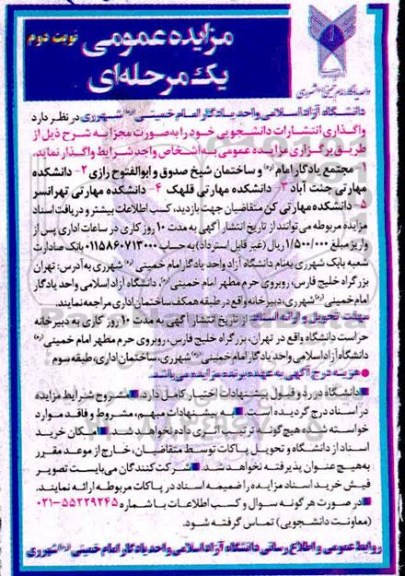 مزایده عمومی
نوبت دوم
یک مرحله‌ای
واحد یادگار امام خمینی (ره) شهرری
دانشگاه آزاد اسلامی واحد یادگار امام خمینی (ره) شهرری در نظر دارد
واگذاری انتشارات دانشجویی خود را به‌صورت مجزا به شرح ذیل از
طریق برگزاری مزایده عمومی به اشخاص واجد شرایط واگذار نماید.
۱- مجتمع یادگار امام (ره) و ساختمان شیخ صدوق و ابوالفتوح رازی ۲- دانشکده
مهارتی جنت آباد ۳- دانشکده مهارتی قلهک ۴- دانشکده مهارتی تهرانسر
۵- دانشکده مهارتی کن متقاضیان جهت بازدید، کسب اطلاعات بیشتر و دریافت اسناد
مزایده مربوطه می‌توانند از تاریخ انتشار آگهی به مدت ۱۰ روز کاری در ساعات اداری پس از
واریز مبلغ ۱/۵۰۰/۰۰۰ ریال (غیر قابل استرداد) به حساب ۰۱۱۵۸۶۰۷۱۳۰۰۰ بانک صادرات
شعبه بابک شهرری به‌نام دانشگاه آزاد واحد یادگار امام خمینی (ره) شهرری به آدرس: تهران
بزرگراه خلیج فارس، روبروی حرم مطهر امام خمینی (ره)، دانشگاه آزاد اسلامی واحد یادگار
امام خمینی (ره) شهرری، دبیرخانه واقع در طبقه همکف ساختمان اداری مراجعه نمایند.
مهلت تحویل و ارائه اسناد: از تاریخ انتشار آگهی به مدت ۱۰ روز کاری به دبیرخانه
حراست دانشگاه واقع در تهران، بزرگراه خلیج فارس، روبروی حرم مطهر امام خمینی (ره)
دانشگاه آزاد اسلامی واحد یادگار امام خمینی (ره) شهرری، ساختمان اداری، طبقه سوم
هزینه درج آگهی به عهده برنده مزایده می‌باشد
دانشگاه در رد و قبول پیشنهادات اختیار کامل دارد. مشروح شرایط مزایده
در اسناد درج گردیده است. به پیشنهادات مبهم، مشروط و فاقد موارد
خواسته شده هیچ‌گونه ترتیب اثری داده نخواهد شد. امکان خرید
اسناد از دانشگاه و تحویل پاکات توسط متقاضیان، خارج از موعد مقرر
به‌هیچ عنوان پذیرفته نخواهد شد. شرکت کنندگان می‌بایست تصویر
فیش خرید اسناد مزایده را ضمیمه اسناد در پاکات مربوطه ارائه نمایند.
در صورت هرگونه سوال و کسب اطلاعات با شماره ۵۵۲۲۹۲۴۵-۰۲۱
(معاونت دانشجویی) تماس گرفته شود.
روابط عمومی و اطلاع رسانی دانشگاه آزاد اسلامی واحد یادگار امام خمینی (ره) شهرری